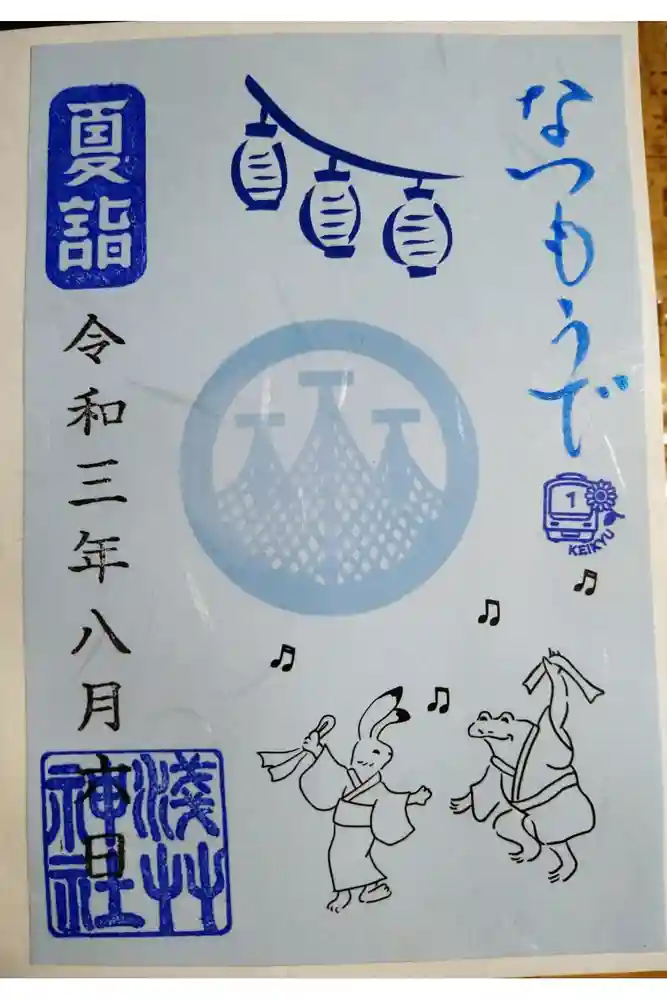 なつもうで
1
KEIKYU
夏詣
令和三年八月六日
淺艸
神社